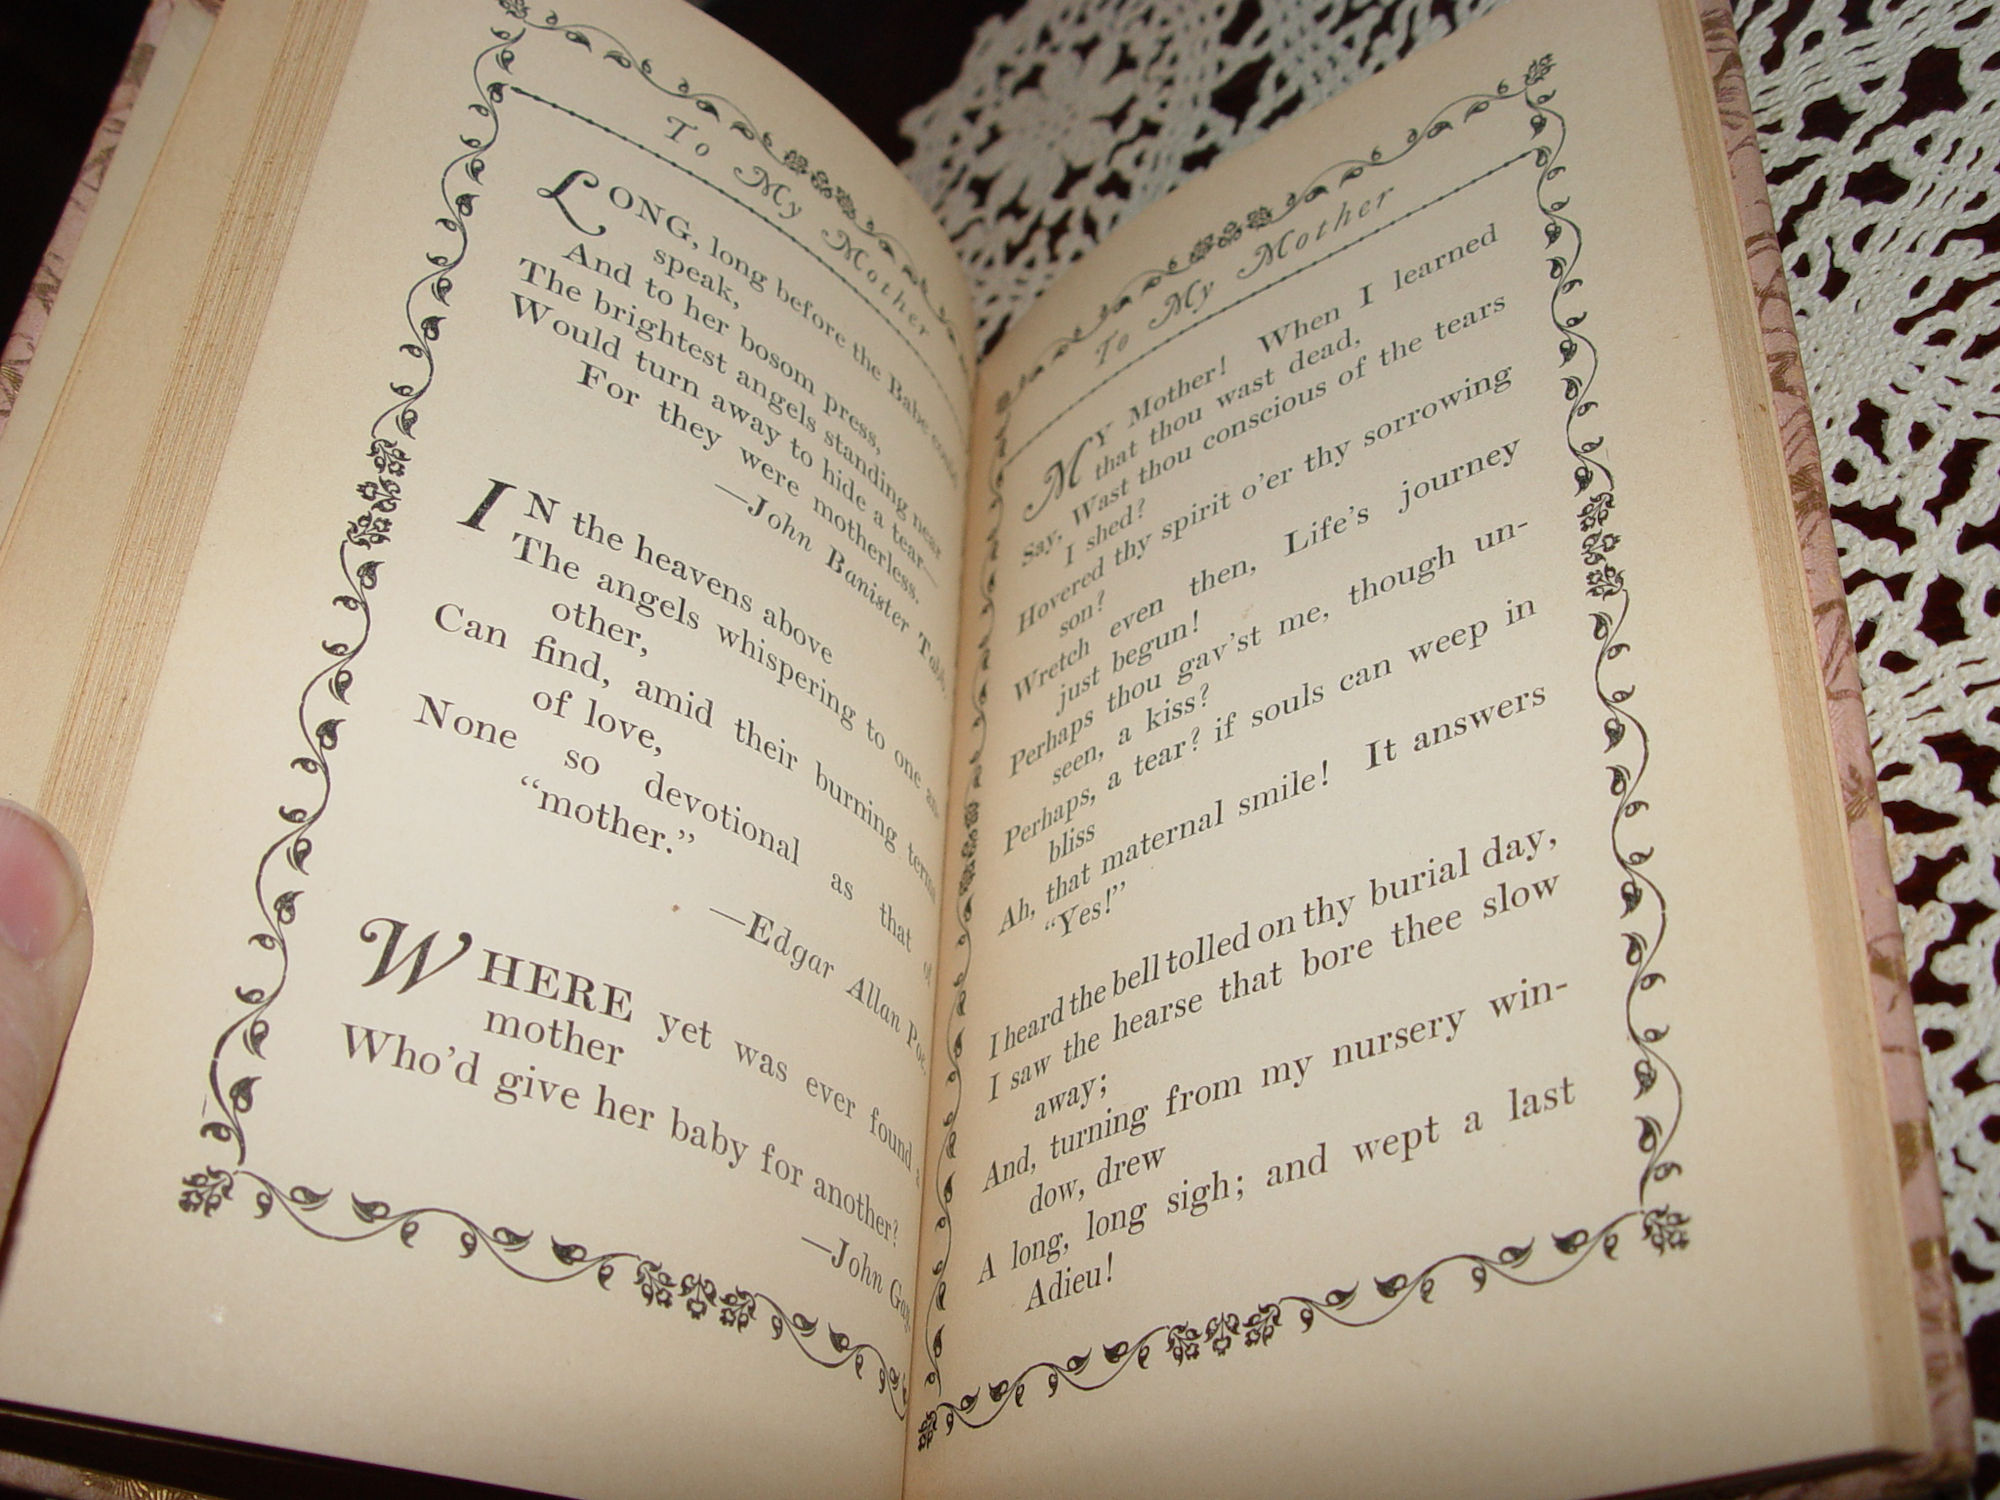 To My Mother
LONG, long before the Babe could
speak,
And to her bosom press,
The brightest angels standing near
Would turn away to hide a tear—
For they were motherless.
—John Banister Tabb.
IN the heavens above
The angels whispering to one an-
other,
Can find, amid their burning terms
of love,
None so devotional as that of
“mother.”
—Edgar Allan Poe.
WHERE yet was ever found a
mother
Who’d give her baby for another?
—John Gay.
To My Mother
MY Mother! When I learned
that thou wast dead,
Say, Wast thou conscious of the tears
I shed?
Hovered thy spirit o’er thy sorrowing
son?
Wretch even then, Life’s journey
just begun!
Perhaps thou gav’st me, though un-
seen, a kiss?
Perhaps, a tear? if souls can weep in
bliss
Ah, that maternal smile! It answers
“Yes!”
I heard the bell tolled on thy burial day,
I saw the hearse that bore thee slow
away;
And, turning from my nursery win-
dow, drew
A long, long sigh; and wept a last
Adieu!